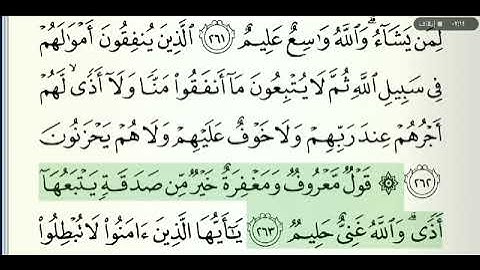 إيقاف ٠٢:١٤
لِمَن يَشَآءُ ۗ وَٱللَّهُ وَٰسِعٌ عَلِيمٌ ٢٦١ ٱلَّذِينَ يُنفِقُونَ أَمْوَٰلَهُمْ
فِى سَبِيلِ ٱللَّهِ ثُمَّ لَا يُتْبِعُونَ مَآ أَنفَقُوا۟ مَنًّا وَلَآ أَذًى ۙ لَّهُمْ
أَجْرُهُمْ عِندَ رَبِّهِمْ وَلَا خَوْفٌ عَلَيْهِمْ وَلَا هُمْ يَحْزَنُونَ
٢٦٢ ۞ قَوْلٌ مَّعْرُوفٌ وَمَغْفِرَةٌ خَيْرٌ مِّن صَدَقَةٍ يَتْبَعُهَآ
أَذًى ۗ وَٱللَّهُ غَنِىٌّ حَلِيمٌ ٢٦٣ يَٰٓأَيُّهَا ٱلَّذِينَ ءَامَنُوا۟ لَا تُبْطِلُوا۟